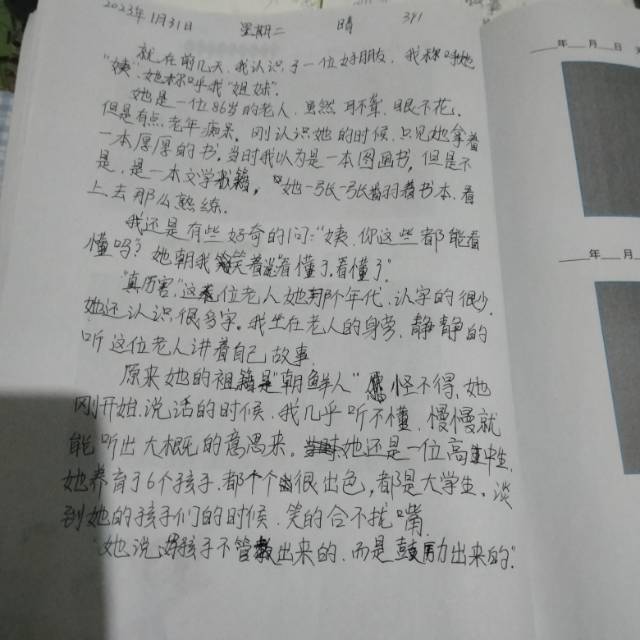 2023年1月31日 星期二 晴 391
就在前几天,我认识了一位好朋友,我称呼她
"姨",她称呼我"姐妹".
她是一位86岁的老人,虽然耳不聋,眼不花,
但是有点老年病来,刚认识她的时候,只见她拿着
一本厚厚的书,当时我以为是一本图画书,但是不
是,是一本文学书籍,她一张一张翻着书本,看
上去那么熟练.
我还是有些好奇的问:"姨,你这些都能看
懂吗?她朝我笑着说看懂了,看懂了"
"真厉害",这位老人她那个年代,认字的很少.
她还认识很多字.我坐在老人的身旁,静静的
听这位老人讲着自己故事.
原来她的祖籍是"朝鲜人"怪不得,她
刚开始,说话的时候,我几乎听不懂,慢慢就
能听出大概的意思来.她还是一位高中生,
她养育了6个孩子,都个个很出色,都是大学生.谈
到她的孩子们的时候,笑的合不拢嘴
"她说孩子不管教出来的,而是鼓励出来的".
年 月 日
年 月